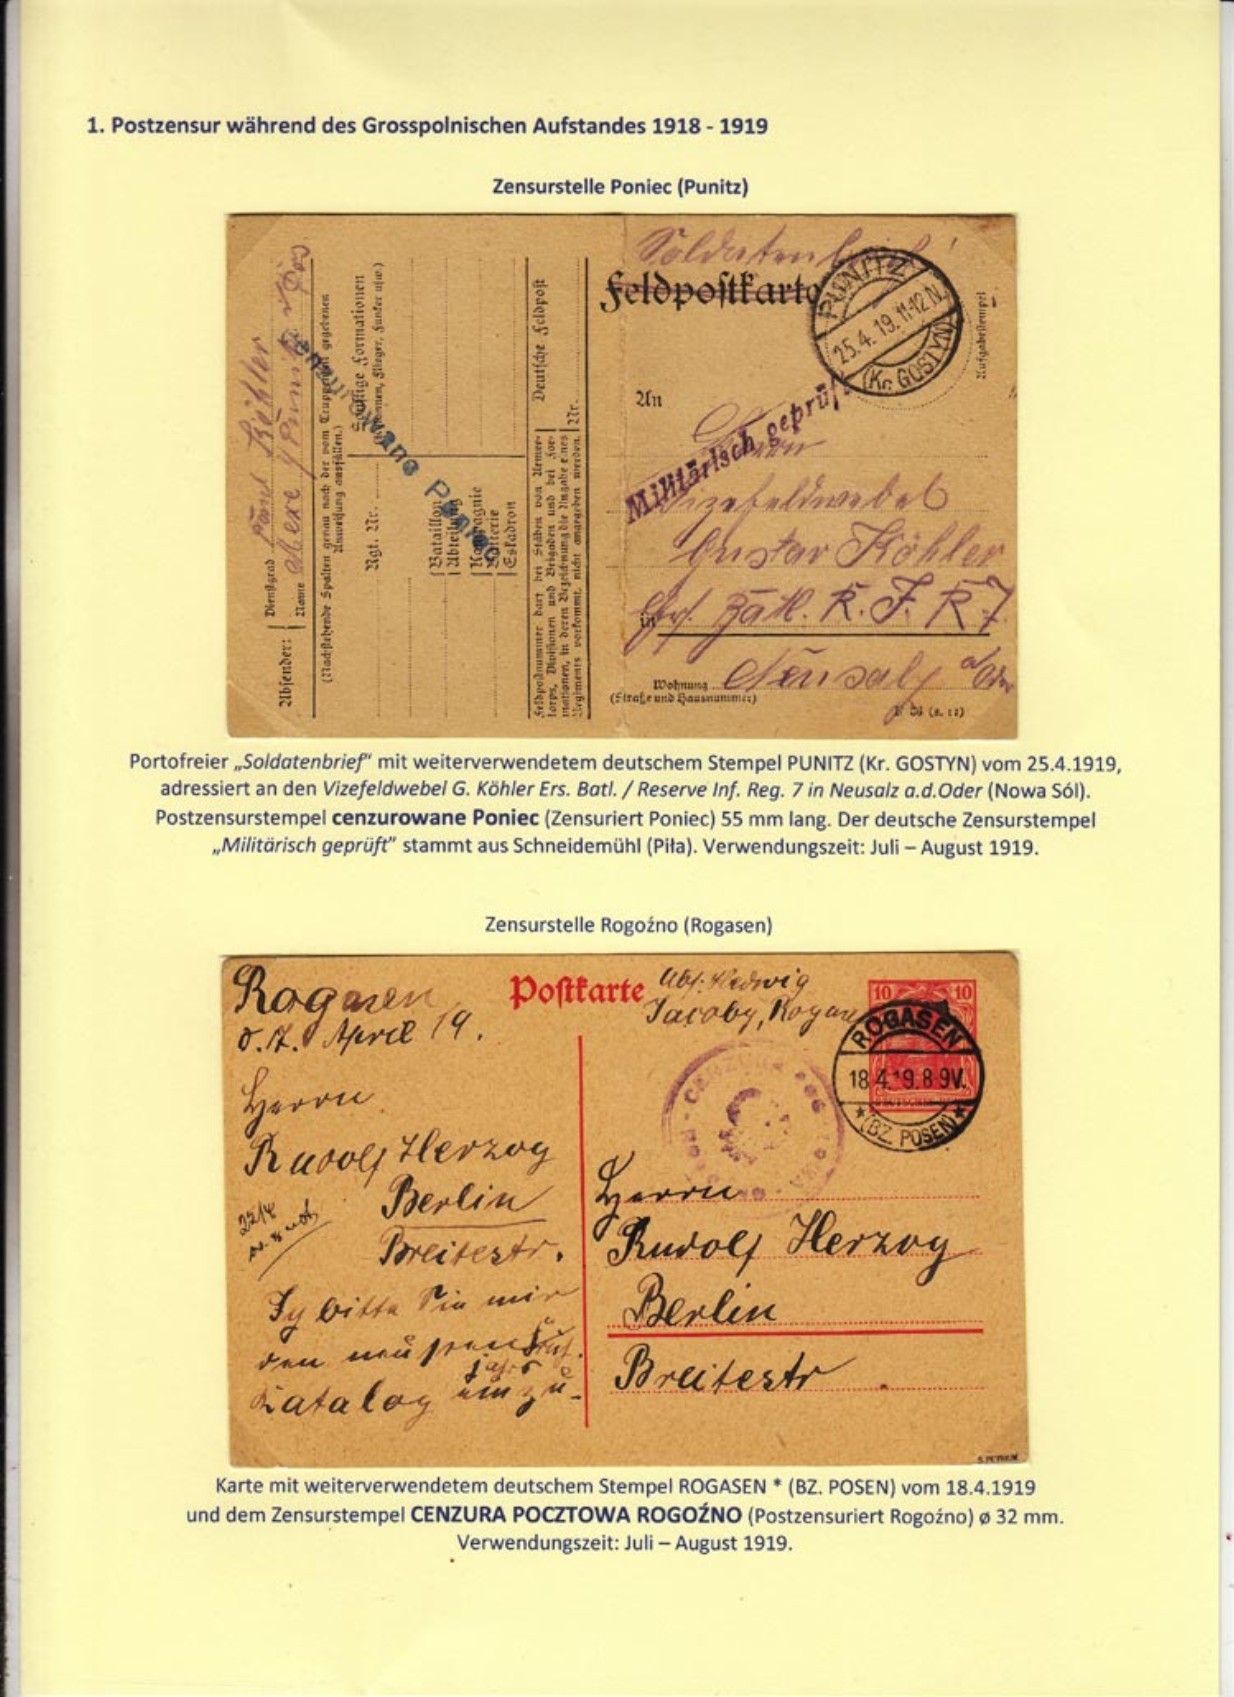 1. Postzensur während des Grosspolnischen Aufstandes 1918 - 1919
Zensurstelle Poniec (Punitz)
Soldatenbrief!
Feldpostkarte
PUNITZ
25.4.19.11-12N.
(Kr. GOSTYN)
Aufgabestempel
An
Militärisch geprüft
Herrn
Vizefeldwebel
Gustav Köhler
in Ers. Batl. R. I. R 7.
Neusalz a/Oder
Wohnung
(Straße und Hausnummer)
Absender:
Dienstgrad
Name
(Nachstehende Spalten genau nach der vom Truppenteil gegebenen
Anweisung ausfüllen.)
Sonstige Formationen
(Kolonnen, Flieger, Funker usw.)
Rgt. Nr.
Bataillon
Abteilung
Kompagnie
Batterie
Eskadron
Deutsche Feldpost
Nr.
Feldpostnummer darf bei Stäben von Armee-
korps, Divisionen und Brigaden und bei For-
mationen, in deren Bezeichnung die Angabe eines
Regiments vorkommt, nicht angegeben werden.
cenzurowane Poniec
Portofreier „Soldatenbrief“ mit weiterverwendetem deutschem Stempel PUNITZ (Kr. GOSTYN) vom 25.4.1919,
adressiert an den Vizefeldwebel G. Köhler Ers. Batl. / Reserve Inf. Reg. 7 in Neusalz a.d.Oder (Nowa Sól).
Postzensurstempel cenzurowane Poniec (Zensuriert Poniec) 55 mm lang. Der deutsche Zensurstempel
„Militärisch geprüft“ stammt aus Schneidemühl (Piła). Verwendungszeit: Juli – August 1919.
Zensurstelle Rogoźno (Rogasen)
Rogasen
d. 17. April 19.
Herrn
Rudolf Herzog
Berlin
Breitestr.
Ich bitte Sie mir
den neusten
Katalog
Postkarte
Abs: Hedwig
Jacoby, Rogasen
10 10
ROGASEN
18.4.19.8-9V.
*(BZ. POSEN)*
CENZURA
Herrn
Rudolf Herzog
Berlin
Breitestr
Karte mit weiterverwendetem deutschem Stempel ROGASEN * (BZ. POSEN) vom 18.4.1919
und dem Zensurstempel CENZURA POCZTOWA ROGOŹNO (Postzensuriert Rogoźno) ø 32 mm.
Verwendungszeit: Juli – August 1919.